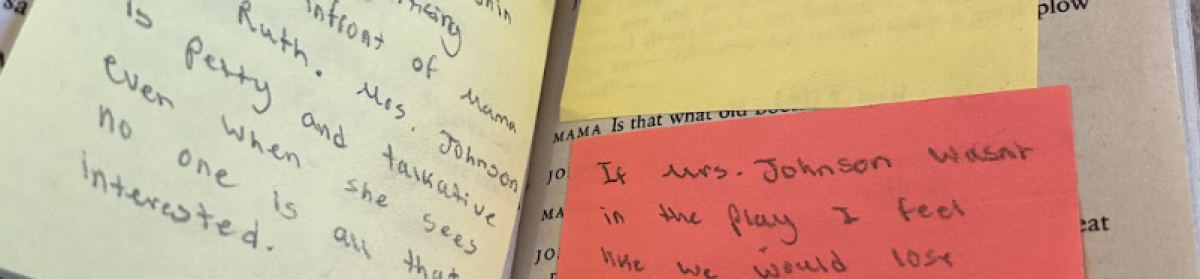 infront of Mama
Ruth. Mrs. Johnson
is petty and talkative
even when she sees
no one is all that
interested.
plow
MAMA Is that what old
JO
If Mrs. Johnson wasnt
MA
in the play I feel
eat
JO
like we would lose